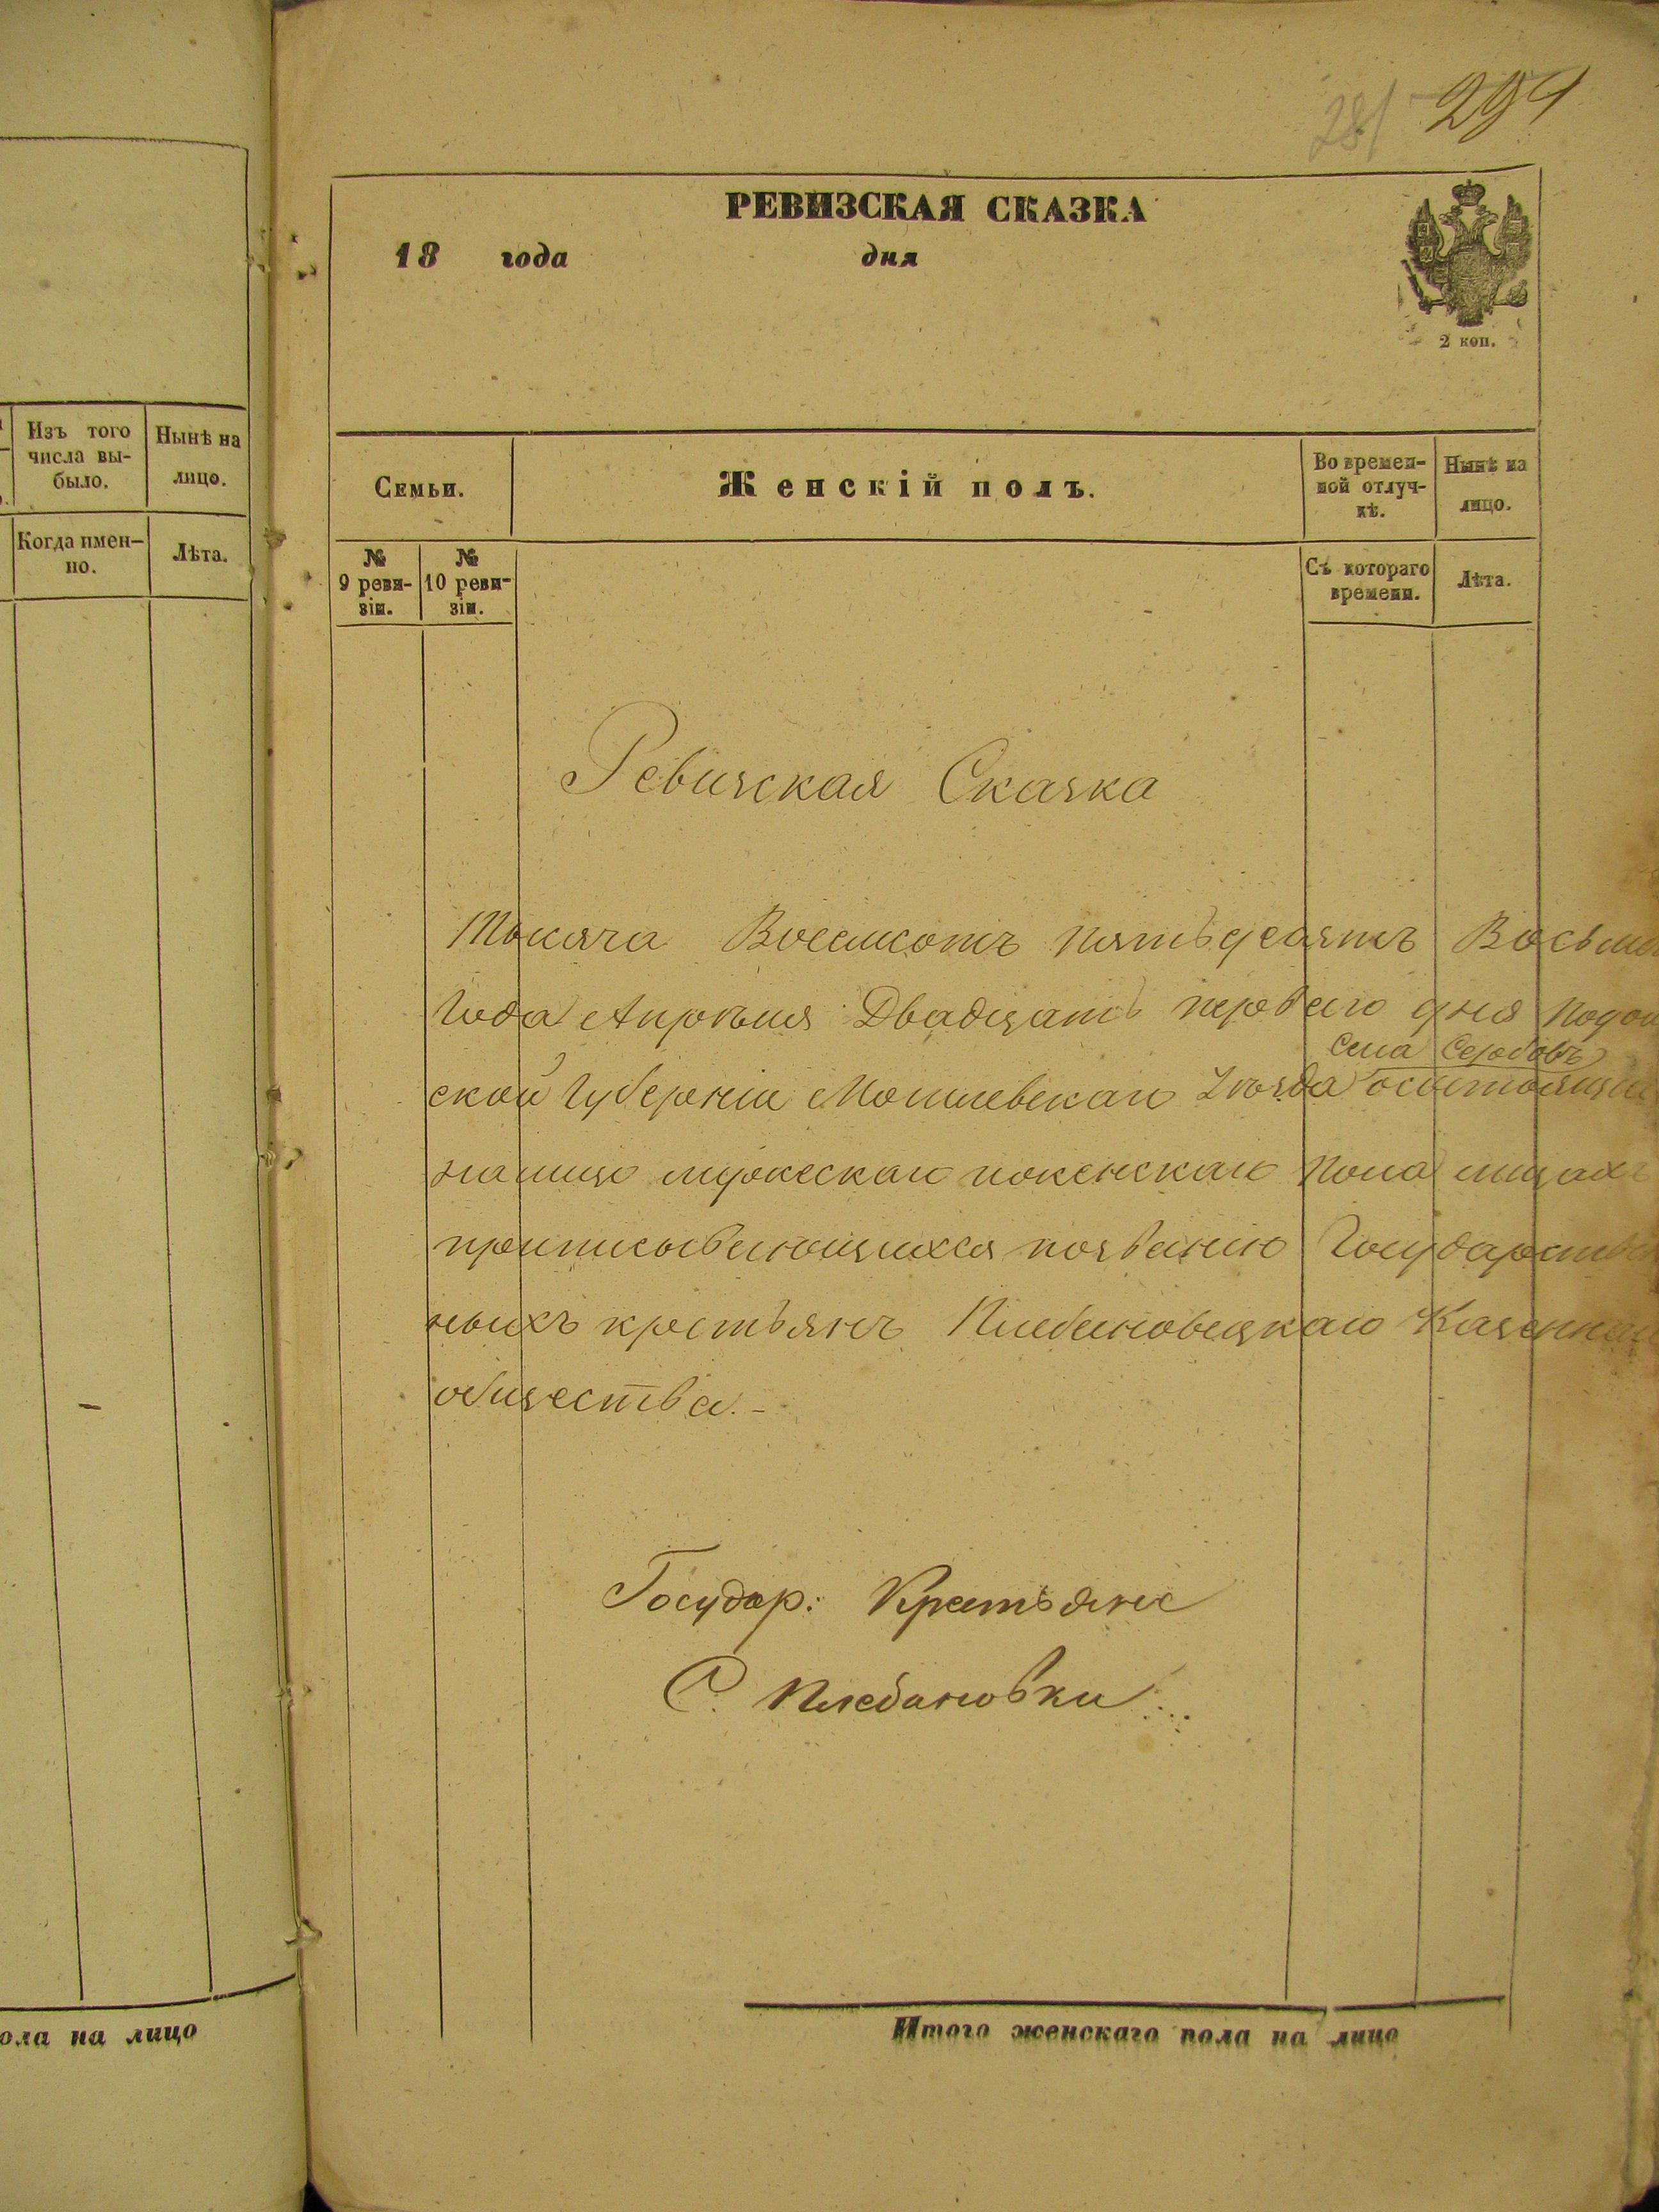 Изъ того
числа вы-
было.
Нынѣ на
лицо.
Когда имен-
но.
Лѣта.
ола на лицо
281 294
РЕВИЗСКАЯ СКАЗКА
18 года дня
2 коп.
Семьи.
Женскій полъ.
Во времен-
ной отлуч-
кѣ.
Нынѣ на
лицо.
№
9 реви-
зіи.
№
10 реви-
зіи.
Съ котораго
времени.
Лѣта.
Ревизская Сказка
Тысяча Восемсотъ пятьдесятъ Восьмо
Года Апрѣля Двадцать первого дня Подол
Села Серебовъ
ской Губерніи Могилевскаго Уѣзда осостоящих
налицо мужескаго иженскаго пола лицахъ
приписывающихся позванію Государствен
ныхъ крестьянъ Плебановецкаго Казеннаго
общества.-
Государ: Крестьяне
С. Плебановки
Итого женскаго пола на лицо